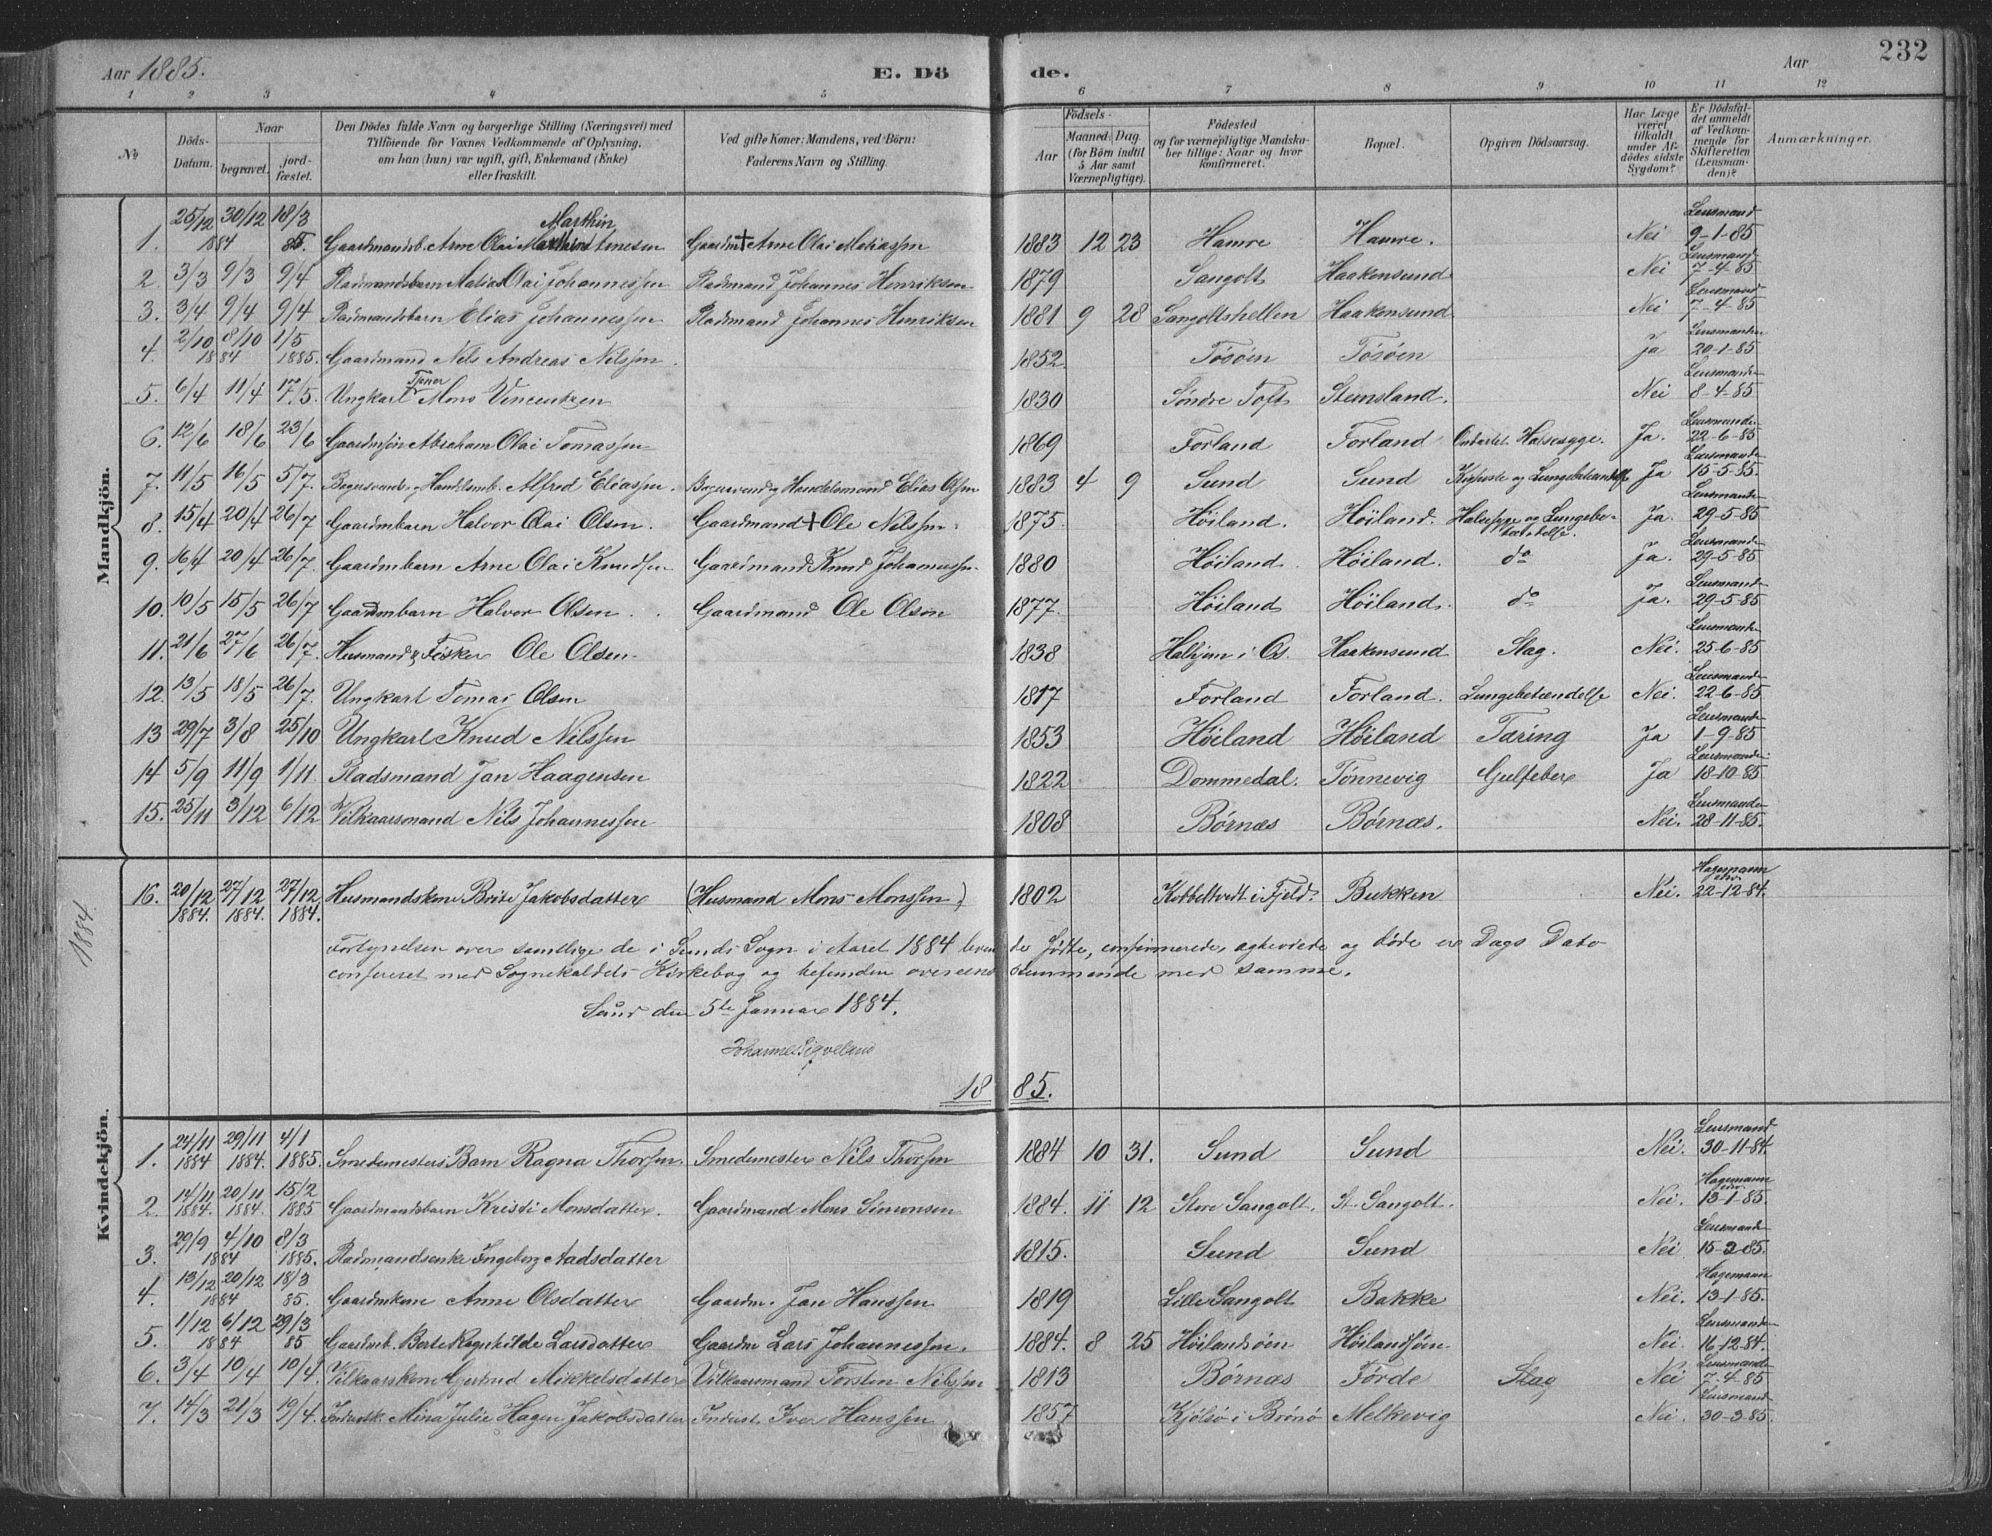 Aar 1885.
E. Dö
de.
Aar
232
1 2 3 4 5 6 7 8 9 10 11 12
No
Döds-Datum.
Naar
begravet.
jord-fæstet.
Den Dödes fulde Navn og borgerlige Stilling (Næringsvei) med
Tilföiende for Voxnes Vedkommende af Oplysning,
om han (hun) var ugift, gift, Enkemand (Enke)
eller fraskilt.
Ved gifte Koner: Mandens, ved Börn:
Faderens Navn og Stilling.
Födsels-
Aar
Maaned Dag.
(for Börn indtil
5 Aar samt
Værnepligtige).
Födested
og for værnepligtige Mandska-
ber tillige: Naar og hvor
konfirmeret.
Bopæl.
Opgiven Dödsaarsag.
Har Læge
været
tilkaldt
under Af-
dödes sidste
Sygdom?
Er Dödsfal-
det anmeldt
af Vedkom-
mende for
Skifteretten
(Lensman-
den)?
Anmærkninger.
Mandkjön.
1. 25/12 1884 30/12 18/3 85. Gaardmandsb. Arne Olai Marthin Arnesen Gaardm + Arne Olai Matiassen 1883 12 23 Hamre Hamre. Nei Lensmand 9-1-85
2. 3/3 9/3 9/4 Stadmandsbarn Matias Olai Johannessen Stadmand Johannes Henriksen 1879 Sangolt Haakensund Nei Lensmand 7-4-85
3. 3/4 9/4 9/4 Stadmandsbarn Elias Johannessen Stadmand Johannes Henriksen 1881 9 28 Sangoltshellen Haakensund Nei Lensmand 7-4-85
4. 2/10 1884 8/10 1/5 1885. Gaardmand Nils Andreas Nilssen. 1852. Tösöen Tösöen Ja Lensmanden 20-1-85
5. 6/4 11/4 17/5. Ungkarl Tjener Mons Vincentsen 1830 Söndre Toft Stemsland. Nei Lensmanden 8-4-85
6. 12/6 18/6 23/6 Gaardmsön Abraham Olai Tomassen 1869 Forland Forland Ondartet Halsesyge. Ja. Lensmanden 22-6-85
7. 11/5 16/5 5/7. Alfred Eliassen. Handelsmand Elias Olsen 1883 4 9 Sund Sund Kighoste og Lungebetændelse Ja Lensmanden 15-5-85.
8. 15/4 20/4 26/7 Gaardmbarn Halvor Olai Olsen. Gaardmand + Ole Nilssen. 1875. Höiland. Höiland. Halsesyge og Lungebe-
tændelse. Ja. Lensmanden 29-5-85
9. 16/4 20/4 26/7. Gaardmbarn Arne Olai Knudsen Gaardmand Knud Johannessen 1880 Höiland. Höiland. do Ja. Lensmanden 29-5-85
10. 10/5 15/5 26/7 Gaardmbarn Halvor Olsen. Gaardmand Ole Olson 1877. Höiland Höiland. do Ja. Lensmanden 29-5-85
11. 21/6 27/6 26/7. Husmand & Fisker Ole Olsen 1838 Halhjem i Os. Haakensund Slag. Nei. Lensmanden 25-6-85
12. 13/5 18/5 26/7. Ungkarl Tomas Olsen 1817 Forland Forland. Lungebetændelse Nei. Lensmanden 22-6-85
13 29/7 3/8 25/10 Ungkarl Knud Nilssen 1853 Höiland Höiland Tæring Ja Lensmanden 1-9-85
14 5/9 11/9 1/11. Stadsmand Jan Haagensen 1822 Dommedal. Tönnevig Gulfeber Ja Lensmanden 18-10-85
15. 25/11 3/12 6/12 Vilkaarsmand Nils Johannessen 1808 Börnæs Börnæs. Nei. Lensmanden 28-11-85.
1884
16. 20/12 1884. 27/12 1884. 27/12 1884. Husmandskone Brite Jakobsdatter (Husmand Mons Monssen) 1802 Kobbeltvedt i Fjeld. Bukken Nei. Hagemann 22-12-84.
Fortegnelsen over samtlige de i Sunds Sogn i Aaret 1884 levende födte, confirmerede, egteviede og döde er Dags Dato
confereret med Sognekaldets Kirkebog og befunden overeensstemmende med samme.
Sund den 5te Januar 1884.
Johannes Sigveland
1885.
Kvindekjön.
1. 24/11 1884 29/11 1884. 4/1 1885. Smedemesters Barn Ragna Thorsen. Smedemester Nils Thorsen 1884 10 31. Sund Sund Nei. Lensmand 30-11-84.
2. 14/11 1884. 20/11 1884. 15/2 1885 Gaardmandsbarn Kristi Monsdatter. Gaardmand Mons Simonsen 1884. 11 12 Store Sangolt. St. Sangolt. Nei. Hagemann 13-1-85.
3. 29/9 1884 4/10 8/3 1885. Stadmandsenke Ingeborg Aadsdatter 1815. Sund Sund Nei Lensmand 15-2-85.
4. 13/12 1884 20/12 18/3 85. Gaardmkone Anne Olsdatter Gaardm. Jan Hanssen 1819 Lille Sangolt Bakke Nei. Hagemann 13-1-85.
5. 1/12 1884 6/12 29/3 85 Gaardmb. Berte Ragnhilde Larsdatter Gaardm Lars Johannessen. 1884. 8 25 Höilandsöen Höilandsöen Nei. Lensmanden 16-12-84.
6. 3/4 10/4 19/4. Vilkaarskone Gjertrud Mikkelsdatter Vilkaarsmand Torsten Nilssen 1813 Börnæs Förde Slag Nei Lensmanden 7-4-85
7. 14/3 21/3 19/4. Mina Julie Hagen Jakobsdatter Iver Hanssen 1857 Kjölsö i Brönö Melkevig Nei. Lensmand 30-3-85.